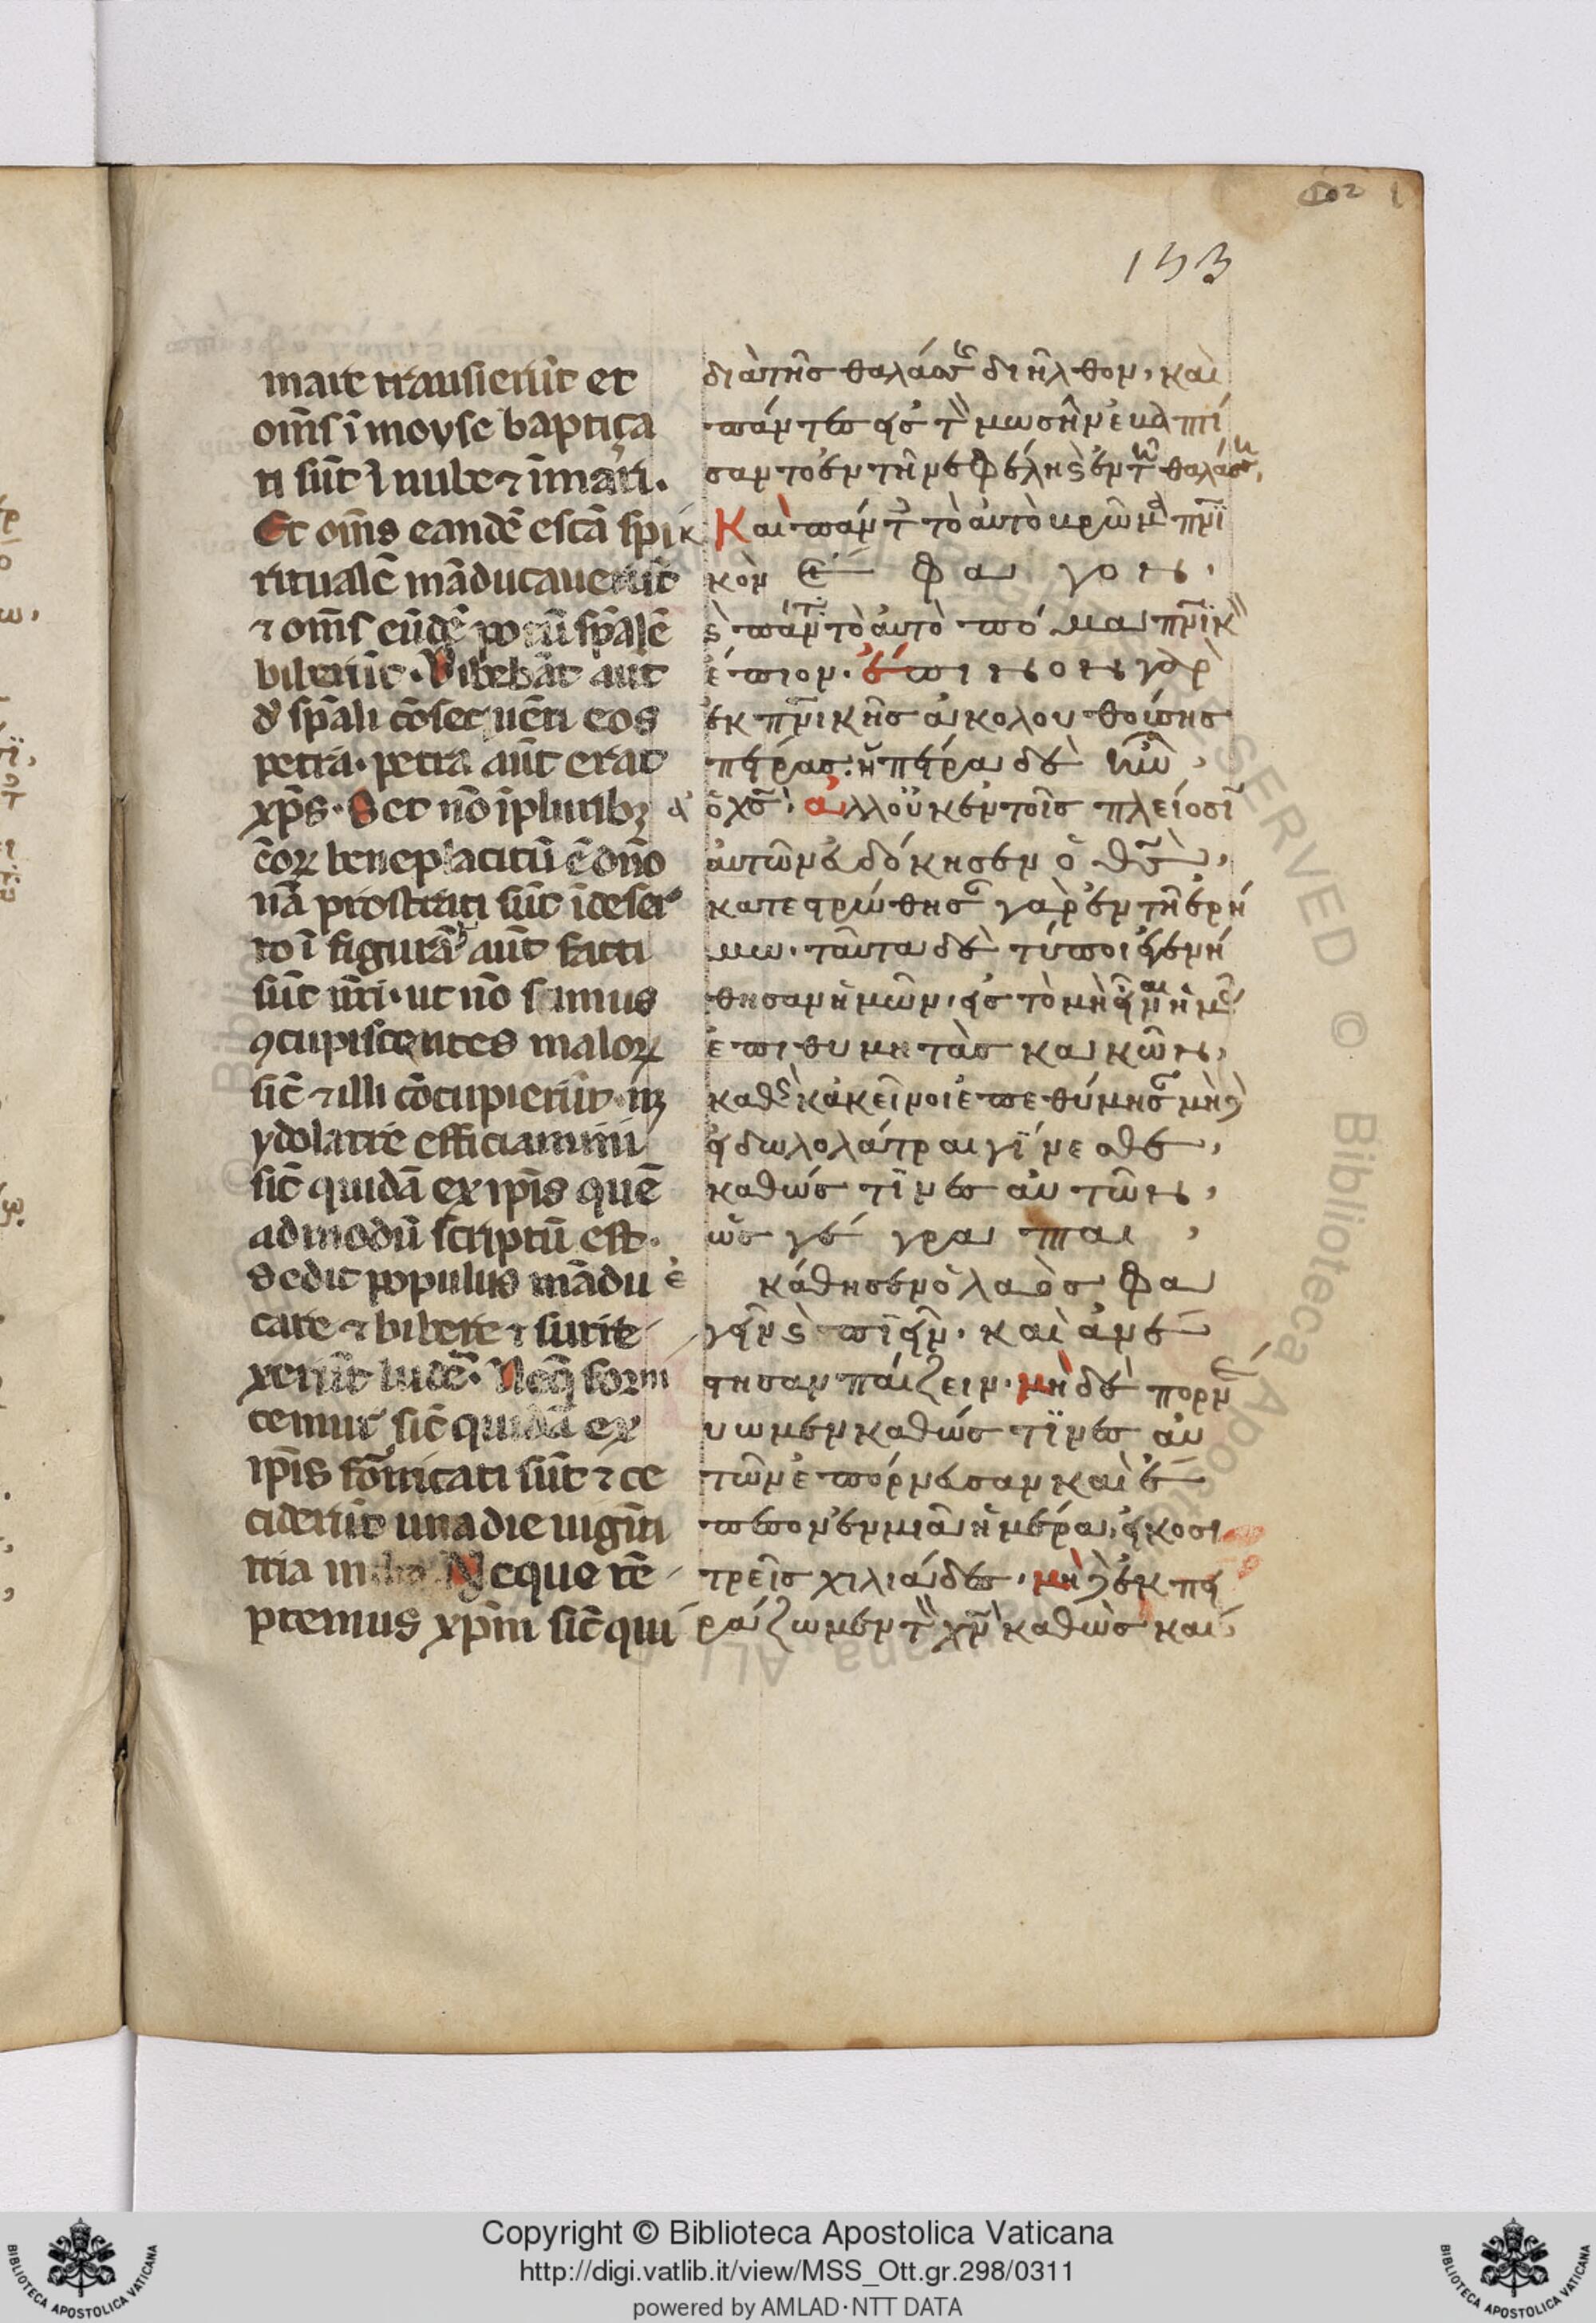 102
153
mare transierūt et
om̄s ī moyse baptiça
ti sūt ī nube ⁊ ī mari.
Et om̄s eandē escā spi
ritualē māducauerūt
⁊ om̄s eūdē potū sp̄alē
biberūt. Bibebāt aūt
d' sp̄ali cōsequēti eos
petra. petra aūt erat
xp̄s. Set nō ī pluribꝫ
eoꝝ beneplacitū ē dn̄o
nā prostrati sūt ī deser
to ī figurā aūt facti
sūt nr̄i. ut nō simus
ꝯcupiscentes maloꝝ
sic̄ ⁊ illi cōcupierūt. neqꝫ
ydolatre efficiamini
sic̄ quidā ex ip̄is quē
admodū scriptū est.
Sedit populus mādu
care ⁊ bibere ⁊ surre
xerūt ludē. Neqꝫ forni
cemur sic̄ quidā ex
ip̄is fōrnicati sūt ⁊ ce
ciderūt una die uigīti
tria milia. Neque tē
ptemus xp̄m sic̄ qui
διὰ τῆς θαλάσσης διῆλθον, καὶ
πάντες εἰς τὸν μωσῆν ἐβαπτί
σαντο ἐν τῆ νεφέλη ϛ ἐν τῆ θαλάσση,
Καὶ πάντες τὸ αὐτὸ βρῶμα πν̅ι
κὸν ἔφαγον,
ϛ πάντες τὸ αὐτὸ πόμα πν̅ικὸν
ἔπιον. ἔπινον γὰρ
ἐκ πν̅ικῆς ἀκολουθούσης
πέτρας. ἡ πέτρα δὲ ἦν,
ὁ χς̅. ἀλλ οὐκ ἐν τοῖς πλείοσιν
αὐτῶν εὐδόκησεν ὁ θς̅,
κατεστρώθησαν γὰρ ἐν τῆ ἐρή
μω. ταῦτα δὲ τύποι ἐγενή
θησαν ἡμῶν. εἰς τὸ μὴ εἶναι ἡμᾶς
ἐπιθυμητὰς κακῶν,
καθὼς κἀκεῖνοι ἐπεθύμησαν μὴ δὲ
εἰδωλολάτραι γίνεσθε,
καθώς τινες αὐτῶν,
ὡς γέγραπται,
ἐκάθησεν ὁ λαὸς φα
γεῖν ϛ πιεῖν. καὶ ἀνέ
στησαν παίζειν. μὴ δὲ πορνεύ
ωμεν καθώς τινες αὐ
τῶν ἐπόρνευσαν καὶ ἔ
πεσον ἐν μιᾶ ἡμέρα, εἴκοσι
τρεῖς χιλιάδες. μὴ δὲ ἐκπει
ράζωμεν τὸν χν̅ καθώς καί
Copyright © Biblioteca Apostolica Vaticana
http://digi.vatlib.it/view/MSS_Ott.gr.298/0311
powered by AMLAD·NTT DATA